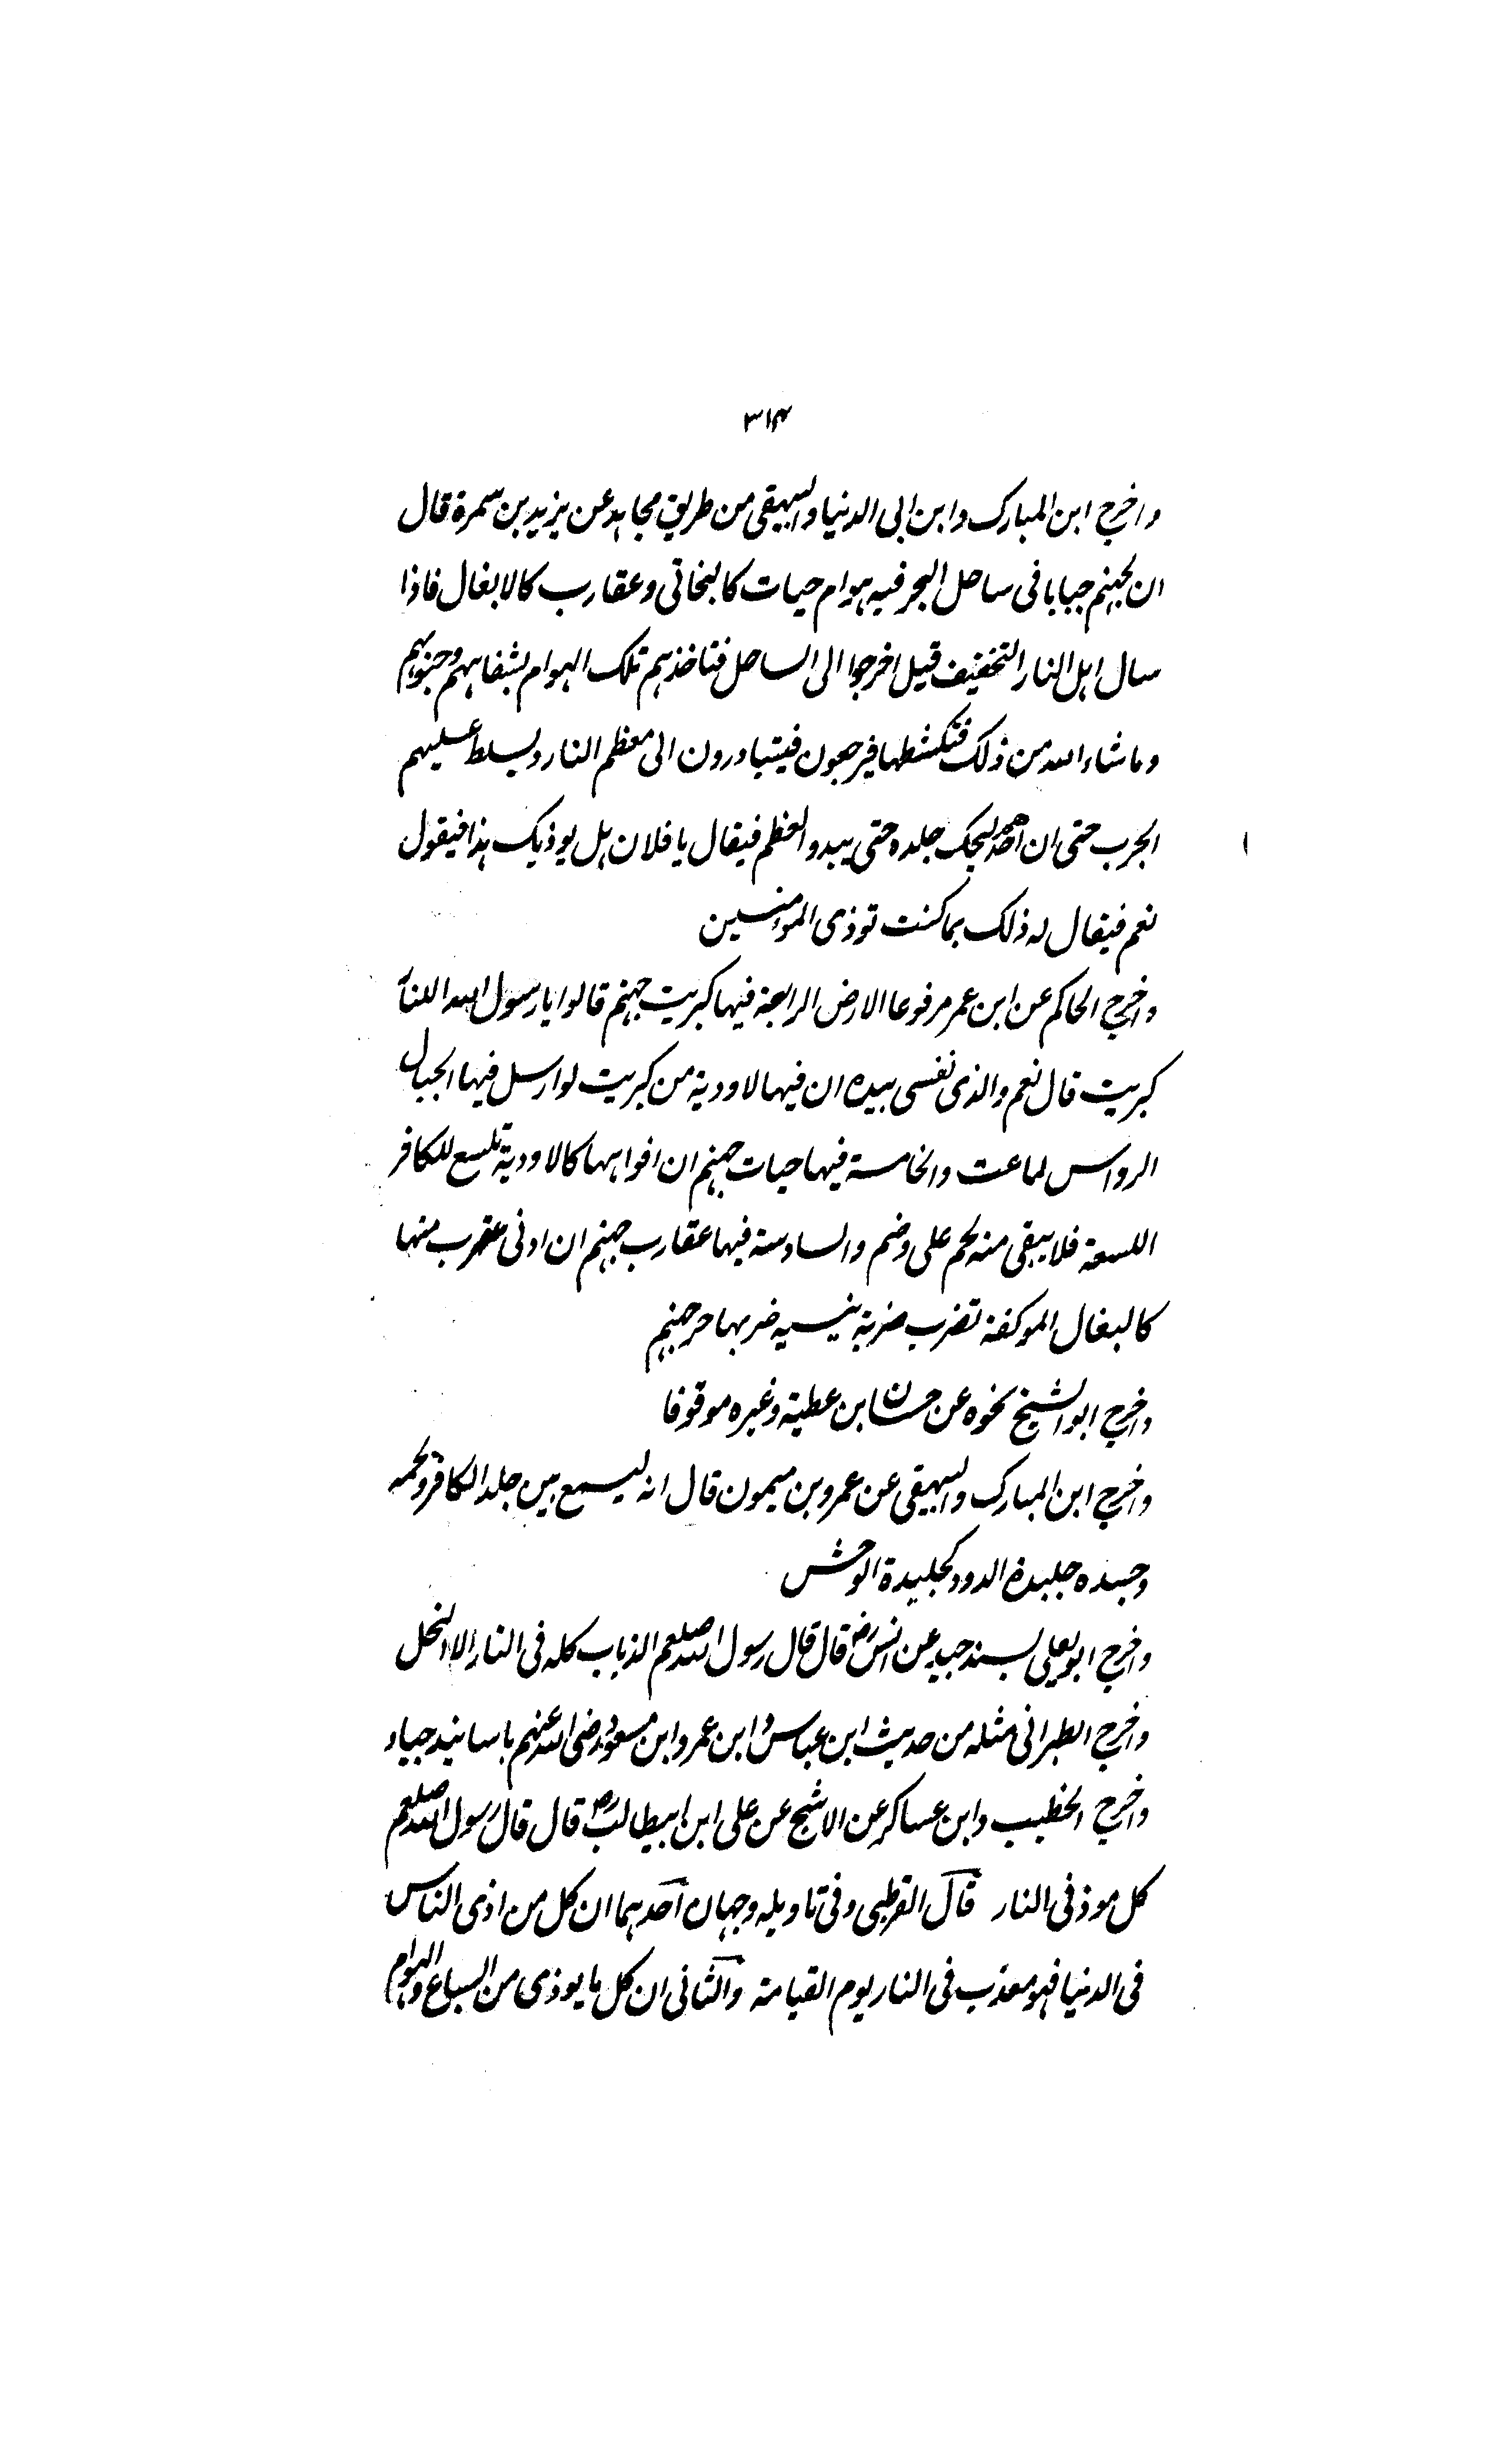 ۳۱۴
واخرج ابن المبارك وابن ابى الدنيا والبيهقى من طريق مجاهد عن يزيد بن سمرة قال
ان لجهنم جبابا فى ساحل البحر فيه هوام حيات كالبخاتى وعقارب كالابغال فاذا
سال اهل النار التخفيف قيل اخرجوا الى الساحل فتاخذهم تلك الهوام بشفاههم وجنوبهم
وما شاء الله من ذلك فتكشطها فيرجعون فيتبادرون الى معظم النار ويسلط عليهم
الجرب حتى ان احدهم ليحك جلده حتى يبدو العظم فيقال يا فلان هل يوذيك هذا فيقول
نعم فيقال له ذلك بما كنت توذى المومنين
واخرج الحاكم عن ابن عمر مرفوعا الارض الرابعة فيها كبريت جهنم قالوا يا رسول الله اللنار
كبريت قال نعم والذى نفسى بيده ان فيها لاودية من كبريت لو ارسل فيها الجبال
الرواس لماعت والخامسة فيها حيات جهنم ان افواهها كالاودية تلسع للكافر
اللسعة فلا يبقى منه لحم على وضم والسادسة فيها عقارب جهنم ان ادنى عقرب منها
كالبغال الموكفة تضرب ضربة ينسيه ضربها حر جهنم
واخرج ابو الشيخ نحوه عن حسان ابن عطية وغيره موقوفا
واخرج ابن المبارك والبيهقى عن عمرو بن ميمون قال انه ليسمع بين جلد الكافر ولحمه
وجسده جلبدة الدود كجليدة الوحش
واخرج ابو يعلى بسند جيد عن انس رض قال قال رسول الله صلعم الذباب كله فى النار الا النحل
واخرج الطبرانى مثله من حديث ابن عباس وابن عمر وابن مسعود رضى الله عنهم باسانيد جياد
واخرج الخطيب وابن عساكر عن الاشج عن على ابن ابيطالب رض قال قال رسول الله صلعم
كل موذ فى النار قال القرطبى وفى تاويله وجهان احدهما ان كل من اذى الناس
فى الدنيا فهو معذب فى النار يوم القيامة والثانى ان كل ما يوذى من السباع والهوام